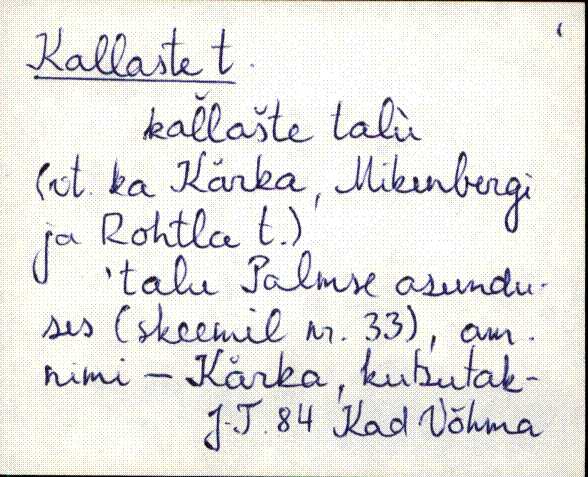 Kallaste t.
kal̆lašte talù
(vt. ka Kărka, Mikenbergi
ja Rohtla t.)
'talu Palmse asundu-
ses (skeemil nr. 33), am.
nimi – Kărka, kutsutak-
J.T. 84 Kad Võhma